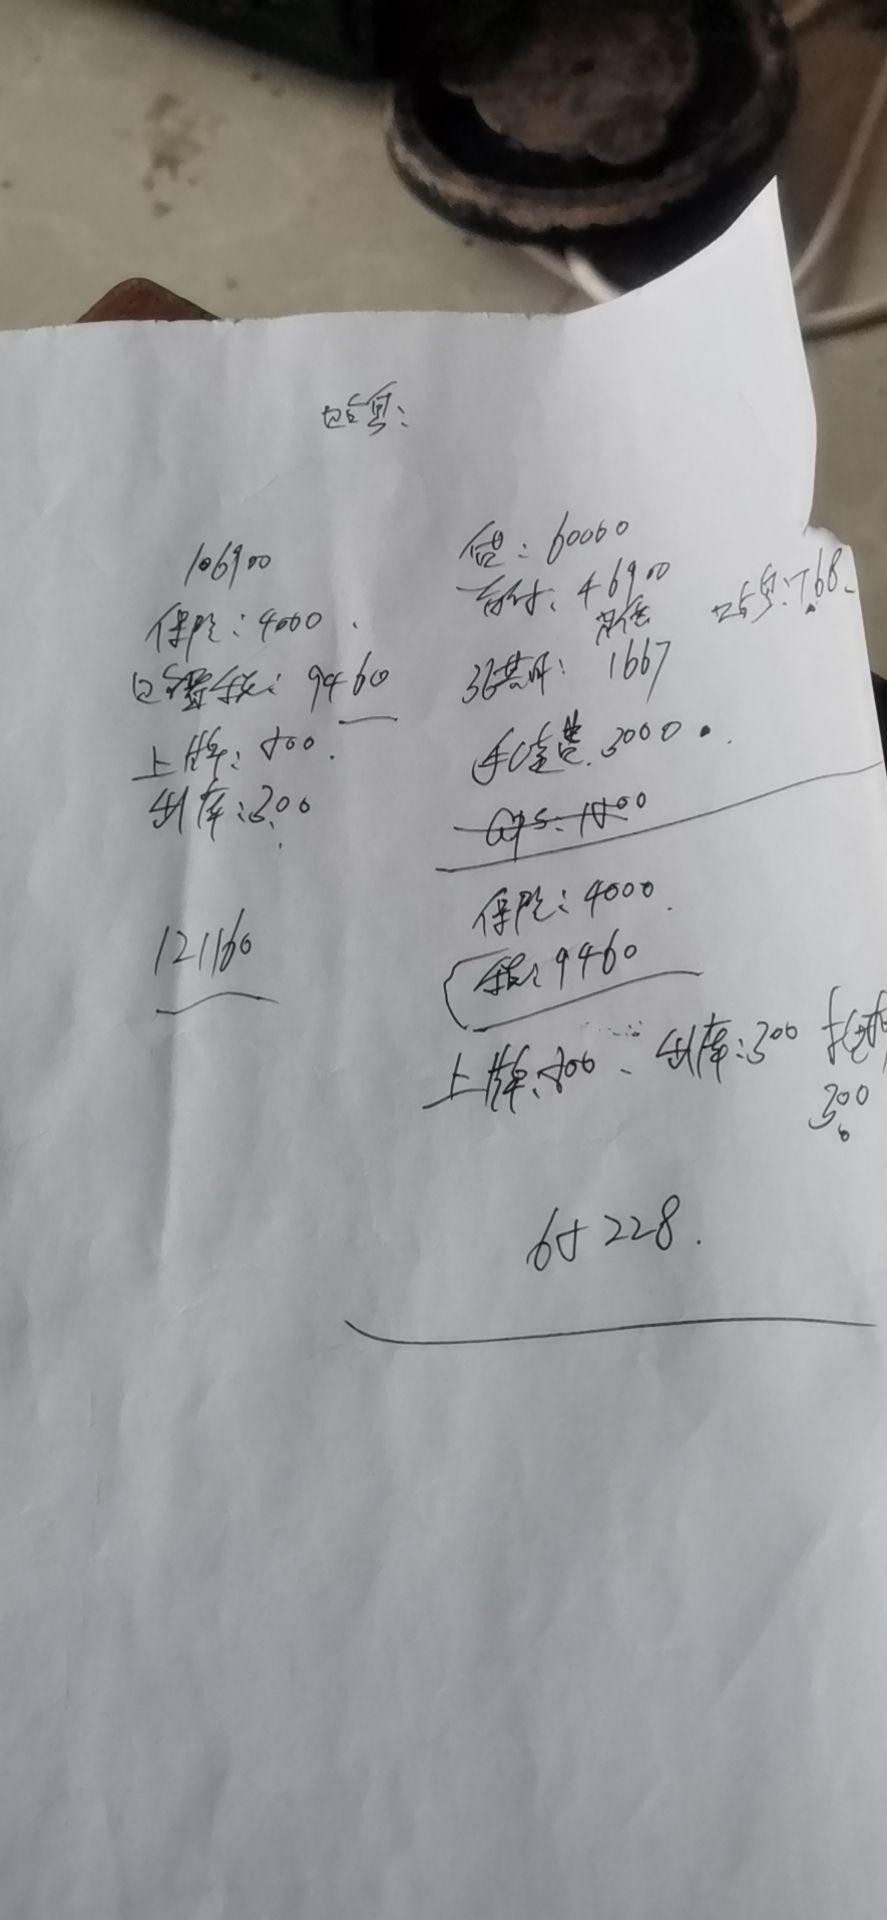 贴息:
106900
保险:4000.
购置税:9460
上牌:500.
出库:300
121160
贷:60000
首付:46900
月供
贴息:768
36期:1667
手续费:3000.
GPS:1800
保险:4000.
税:9460
上牌:500、出库:300
300
65228.